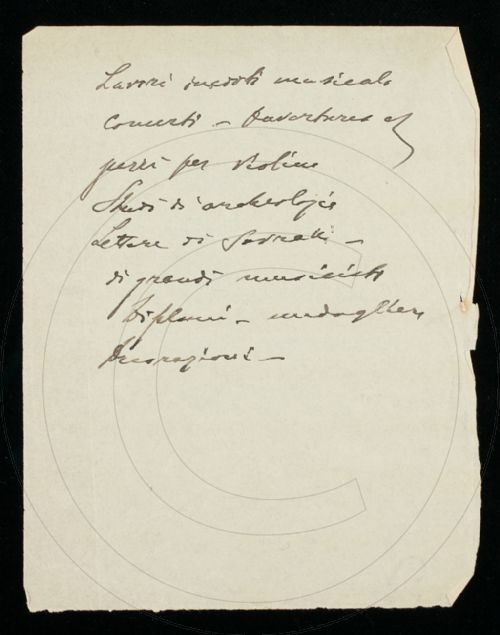 Lavori inediti musicali
concerti – Ouvertures e
pezzi per violino
Studi di archeologia
Lettere di Sovrani –
di grandi musicisti
Diplomi – medaglie
Decorazioni –